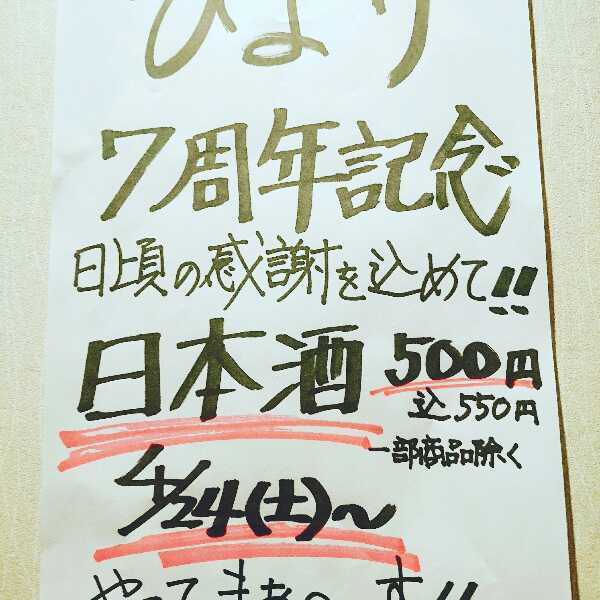 ひより
7周年記念
日頃の感謝を込めて!!
日本酒 500円
込550円
一部商品除く
4/24(土)~
やってます